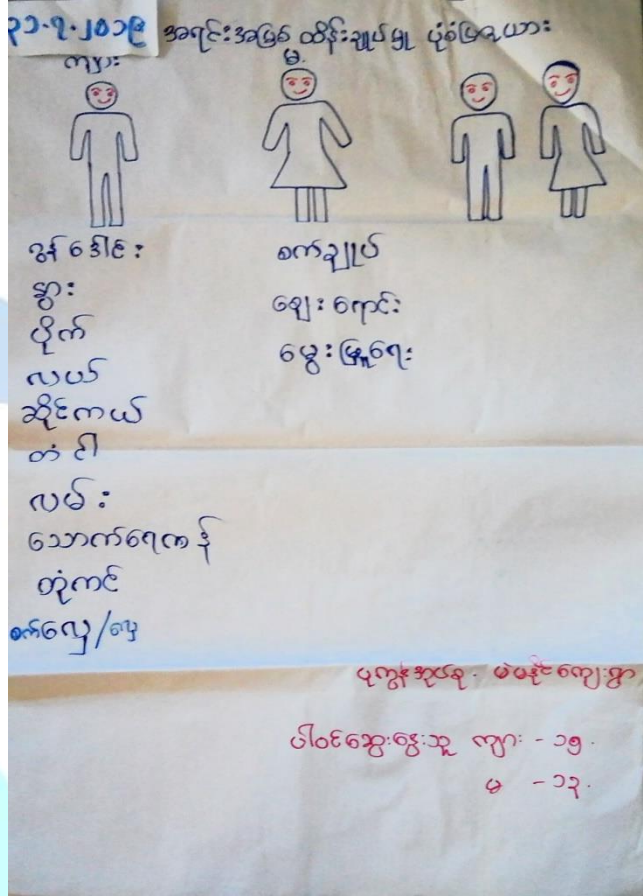 ၃၁.၇.၂၀၁၉ အရင်းအမြစ် ထိန်းချုပ်မှု ပုံစံပြဇယား
ကျား
မ
ထွန်ဒေါင်း
နွား
ပိုက်
လယ်
ဆိုင်ကယ်
တံငါ
လမ်း
သောက်ရေကန်
တုံကင်
စက်လှေ/လှေ
စက်ချုပ်
ဈေးရောင်း
မွေးမြူရေး
ပုဏ္ဏားအုပ်စု
ကျေးရွာ
ပါဝင်ဆွေးနွေးသူ ကျား - ၁၅.
မ - ၁၃.